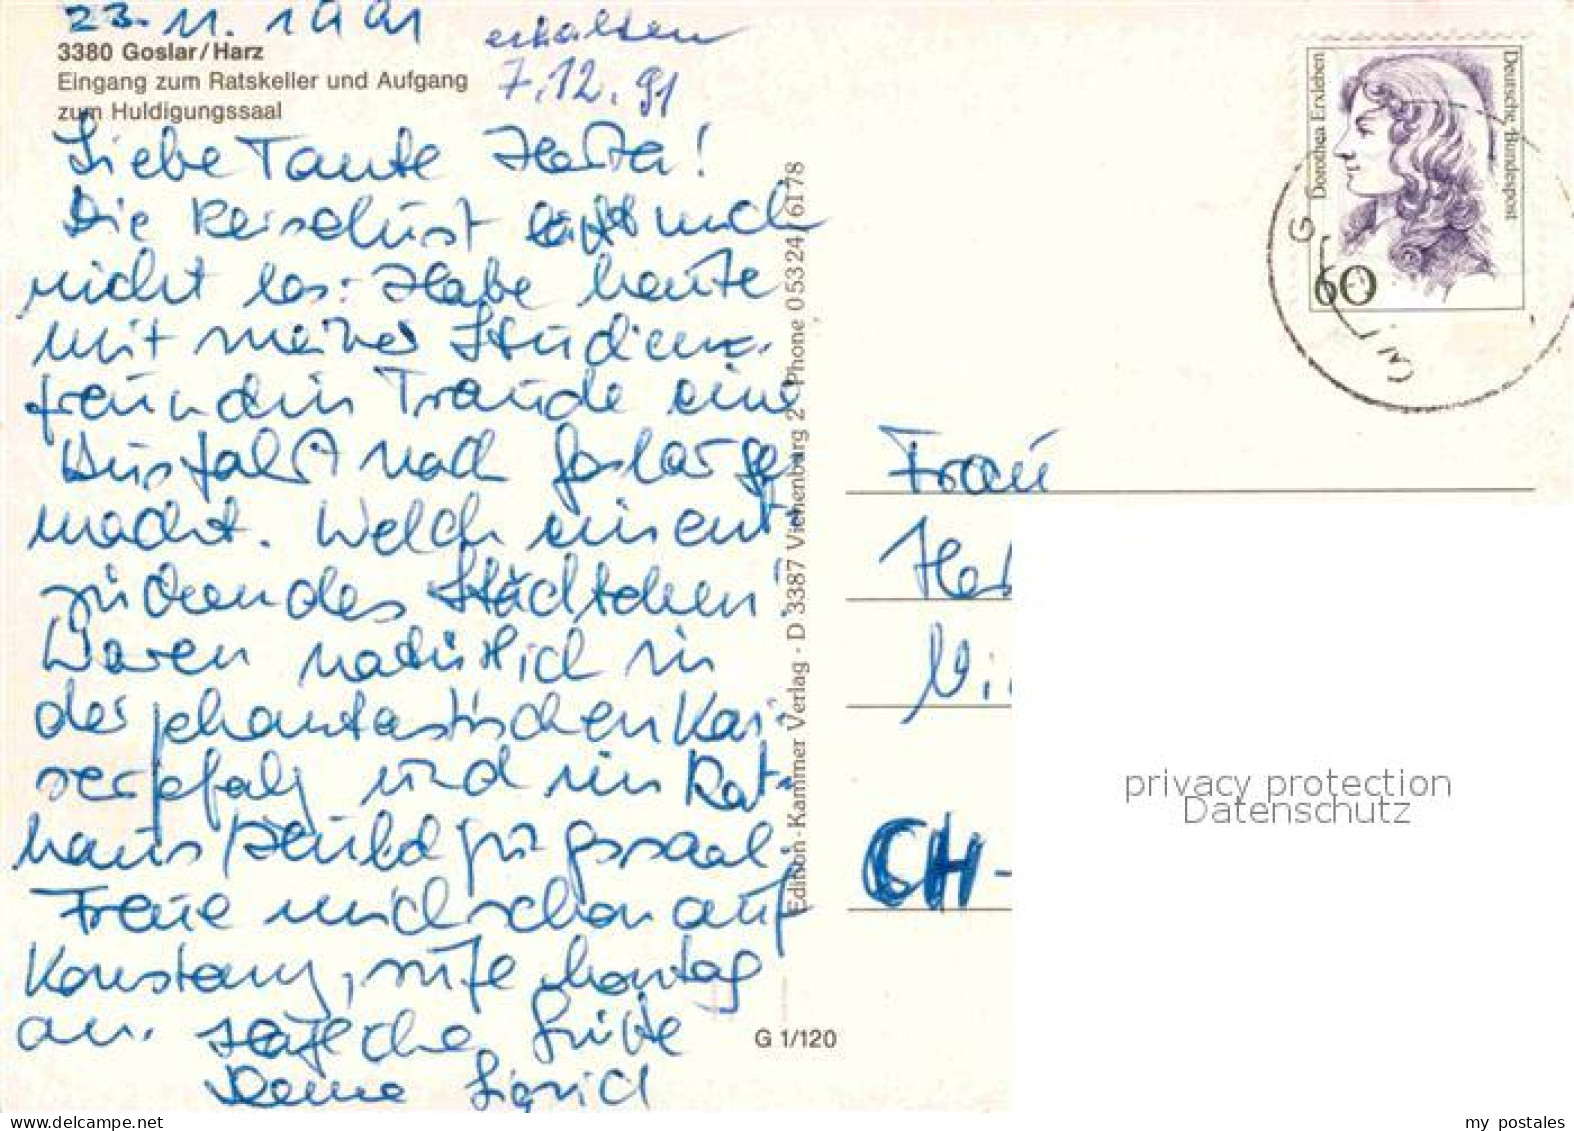 23. 11. 1991
erhalten
7.12.91
3380 Goslar/Harz
Eingang zum Ratskeller und Aufgang
zum Huldigungssaal
Liebe Tante Herta!
Die Reiselust läßt mich
nicht los: Habe heute
mit meiner Studien-
freundin Traude eine
Ausfahrt nach Goslar ge
macht. Welch ein ent
zückendes Städtchen!
Waren natürlich in
der phantastischen Kai-
serpfalz und im Rat-
haus
Freue mich schon auf
Konstanz, rufe Montag
an. Herzliche Grüße
Deine Sigrid
Edition-Kammer Verlag · D 3387 Vienenburg 2 Phone 05324/6178
G 1/120
Deutsche Bundespost
Dorothea Erxleben
60
Frau
Her
CH-
privacy protection
Datenschutz
delcampe.net
my postales